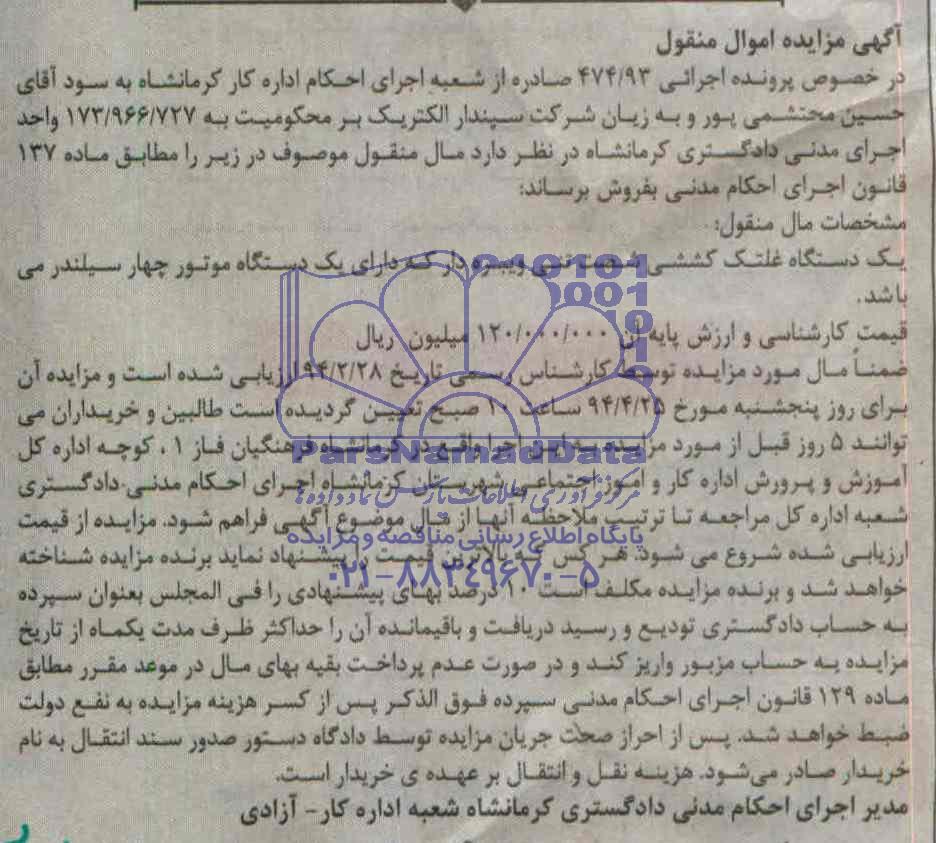 آگهی مزایده اموال منقول
در خصوص پرونده اجرائی ۴۷۴/۹۳ صادره از شعبه اجرای احکام اداره کار کرمانشاه به سود آقای
حسین محتشمی پور و به زیان شرکت سپندار الکتریک بر محکومیت به ۱۷۳/۹۶۶/۷۲۷ واحد
اجرای مدنی دادگستری کرمانشاه در نظر دارد مال منقول موصوف در زیر را مطابق ماده ۱۳۷
قانون اجرای احکام مدنی بفروش برساند:
مشخصات مال منقول:
یک دستگاه غلتک کششی تنی ویبره دار که دارای یک دستگاه موتور چهار سیلندر می
باشد.
قیمت کارشناسی و ارزش پایه آن ۱۲۰/۰۰۰/۰۰۰ میلیون ریال
ضمناً مال مورد مزایده توسط کارشناس رسمی تاریخ ۹۴/۲/۲۸ ارزیابی شده است و مزایده آن
برای روز پنجشنبه مورخ ۹۴/۴/۲۵ ساعت ۱۰ صبح تعیین گردیده است طالبین و خریداران می
توانند ۵ روز قبل از مورد مزایده به این اجرا واقع در کرمانشاه فرهنگیان فاز ۱ ، کوچه اداره کل
آموزش و پرورش اداره کار و امور اجتماعی شهرستان کرمانشاه اجرای احکام مدنی دادگستری
شعبه اداره کل مراجعه تا ترتیب ملاحظه آنها از مال موضوع آگهی فراهم شود. مزایده از قیمت
ارزیابی شده شروع می شود. هر کس که بالاترین قیمت را پیشنهاد نماید برنده مزایده شناخته
خواهد شد و برنده مزایده مکلف است ۱۰ درصد بهای پیشنهادی را فی المجلس بعنوان سپرده
به حساب دادگستری تودیع و رسید دریافت و باقیمانده آن را حداکثر ظرف مدت یکماه از تاریخ
مزایده به حساب مزبور واریز کند و در صورت عدم پرداخت بقیه بهای مال در موعد مقرر مطابق
ماده ۱۲۹ قانون اجرای احکام مدنی سپرده فوق الذکر پس از کسر هزینه مزایده به نفع دولت
ضبط خواهد شد. پس از احراز صحت جریان مزایده توسط دادگاه دستور صدور سند انتقال به نام
خریدار صادر می‌شود. هزینه نقل و انتقال بر عهده ی خریدار است.
مدیر اجرای احکام مدنی دادگستری کرمانشاه شعبه اداره کار - آزادی
ParsNamadData
مرکز فرآوری اطلاعات پارس نماد داده‌ها
پایگاه اطلاع رسانی مناقصه و مزایده
۰۲۱-۸۸۳۴۹۶۷۰-۵